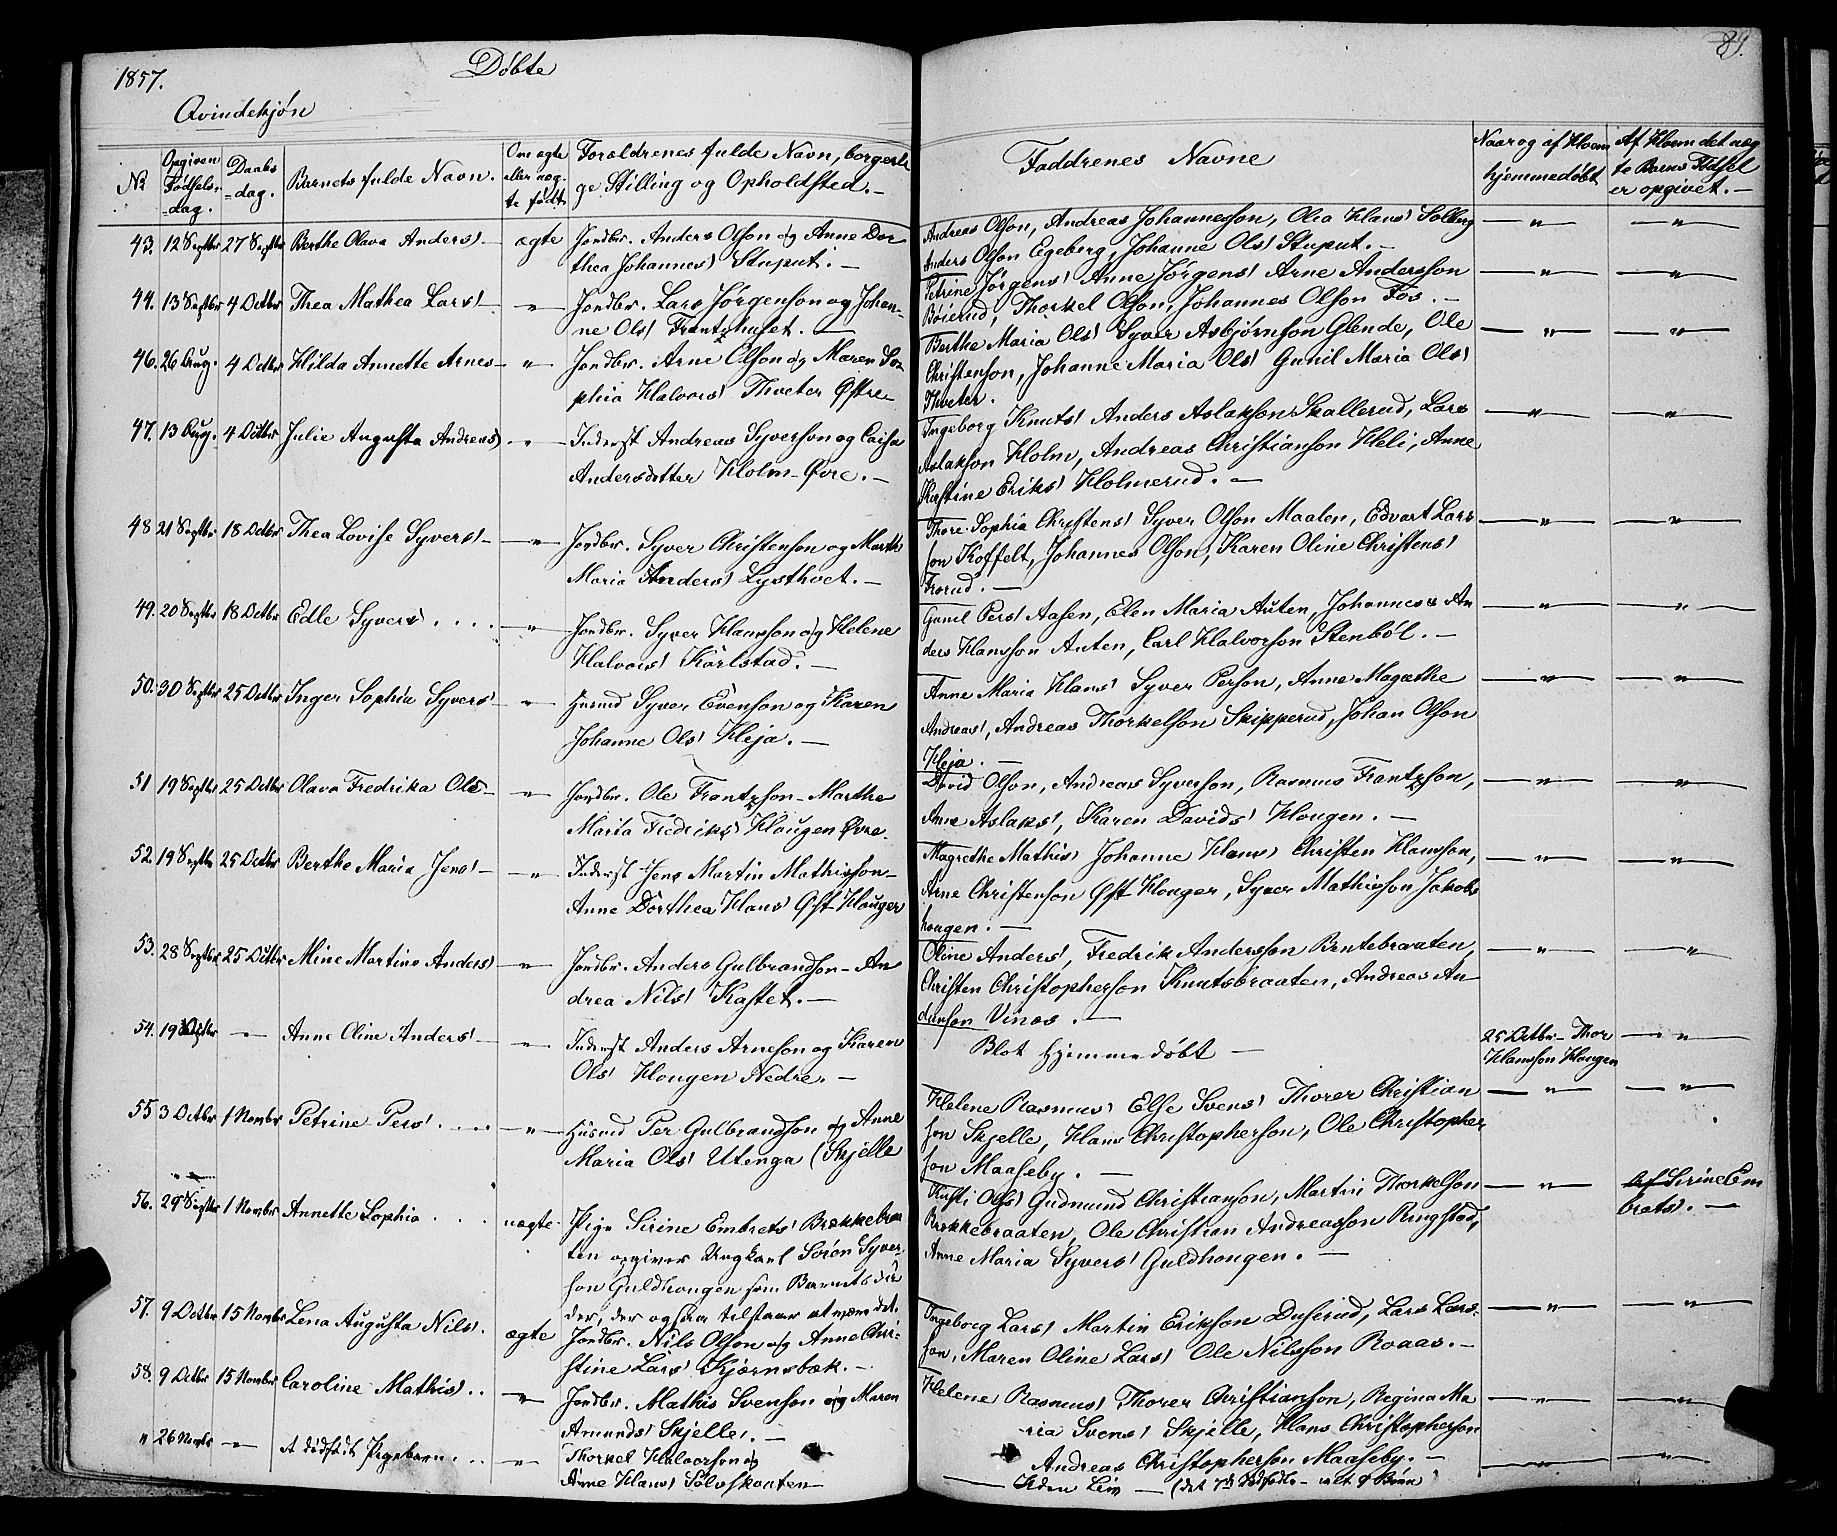 1857.
Døbte
89.
Qvindekjøn
№
Opgiven Fødsels-dag.
Daabs-dag.
Barnets fulde Navn.
Om ægte eller uæg-te født
Forældrenes fulde Navn, borgerli-
ge Stilling og Opholdsted.-
Faddrenes Navne
Naar og af Hvem
hjemmedøbt
Af Hvem det uæg-
te Barns Fødsel
er opgivet.-
43. 12 Septbr 27 Septbr Berthe Olava Anders! ægte Jordbr. Anders Olson og Anne Dor
thea Johannes! Stuput.-
Andreas Olson, Andreas Johannesson, Olia Hans! Solberg
Anders Olson Egeberg, Johanne Ols! Stuput.-
44. 13 Septbr 4 Octbr Thea Mathea Lars! " Jordbr. Lars Jørgenson og Johan-
ne Ols! Frantzhuset.-
Petrine Jørgens! Anne Jørgens! Arne Andersson
Böierud, Thorkel Olson, Johannes Olson Fos.-
46. 26 Aug. 4 Octbr Hilda Annette Arnes- " Jordbr. Arne Olson og Maren So-
phia Halvors! Thveter Østre-
Berthe Maria Ols! Syver Asbjørnson Glende, Ole
Christenson, Johanne Maria Ols! Gunil Maria Ols!
Thveter.
47. 13 Aug. 4 Octbr Julie Augusta Andreas! " Inderst Andreas Syverson og Caisa
Andersdotter Holm-Øvre.-
Ingeborg Knuts! Anders Aslakson Skallerud, Lars
Aslakson Holm, Andreas Christianson Heli, Anne
Kirstine Eriks! Holmerud.-
48 21 Septbr 18 Octbr Thea Lovise Syvers!- " Jordbr. Syver Christenson og Marth
Maria Anders! Lysthvet.-
Thore Sophia Christens! Syver Olson Maalen, Edvart Lars
son Koffelt, Johannes Olson, Karen Oline Christens!
Frorud.-
49. 20 Septbr 18 Octbr Edle Syvers! .... " Jordbr. Syver Hansson og Helene
Halvors! Karlstad.-
Gunil Pers! Aasen, Elen Maria Auten, Johannes & An
ders Hansson Auten, Carl Halvorson Stenböl.-
50. 30 Septbr 25 Octbr Inger Sophia Syvers! " Husmd Syver Evenson og Karen
Johanne Ols! Heja.-
Anne Maria Hans! Syver Person, Anne Magrethe
Andreas!, Andreas Thorkelson Skipperud, Johan Olson
Heja.-
51 19 Septbr 25 Octbr Olava Fredrika Ols- " Jordbr. Ole Frantzson-Marthe
Maria Fredriks! Haugen Øvre.
David Olson, Andreas Syverson, Rasmus Frantzson,
Anne Aslaks!, Karen Davids! Hougen.-
52. 19 Septbr 25 Octbr Berthe Maria Jens!- " Inderst Jens Martin Mathisson-
Anne Dorthea Hans! Øst Houger
Magrethe Mathis! Johanne Hans! Christen Hansson,
Arne Christenson Øst Houger, Syver Mathisson Jakobs
hougen.-
53. 28 Septbr 25 Octbr Mine Martine Anders! " Jordbr. Anders Gulbrandson-An
drea Nils! Kastet.-
Oline Anders!, Fredrik Andersson Brutebraaten,
Christen Christopherson Knutsbraaten, Andreas An
dersson Vinæs.-
54. 19 Septbr - Anne Oline Anders!- " Inderst Anders Arneson og Karen
Ols! Hougen Nedre.-
Blot Hjemmedøbt-
25 Octbr- Thor
Hansson Hougen
55 3 Octbr 1 Novmbr Petrine Pers! .... " Husmd Per Gulbrandson og Anne
Maria Ols! Utenga (Skjelle
Helene Rasmus! Else Svens! Thorer Christian
son Skjelle, Hans Christopherson, Ole Christopher
son Maaseby.-
56. 29 Septbr 1 Novmbr Annette Sophia ... uægte Pige Sirine Embrets! Brækkebraa
ten opgiver Ungkarl Søren Syver-
son Guldhougen som Barnets Fa
der, der ogsaa tilstaar at være det.
Kristi Ols! Gudmund Christianson, Martin Thorkelson
Brækkebraaten, Ole Christian Andreasson Ringstad,
Anne Maria Syvers! Guldhougen.-
Af Sirine Em
brets!.-
57. 9 Octbr 15 Novmbr Lena Augusta Nils!. ægte Jordbr. Nils Olson og Anne Chri-
stine Lars! Kjærnsbæk.-
Ingeborg Lars! Martin Erikson Duserud, Lars Lars-
son, Maren Oline Lars! Ole Nilsson Roaas.-
58. 9 Octbr 15 Novmbr Caroline Mathis!.. " Jordbr. Mathis Svenson og Maren
Amunds! Skjelle.-
Helene Rasmus! Thorer Christianson, Regina Ma
ria Svens! Skjelle, Hans Christopherson
Andreas Christopherson Maaseby.-
" 26 Novmbr - Et dødfødt Pigebarn... " Thorkel Halvorson og
Anne Hans! Sølvskouten-
Uden Liv-(det 7de Dødfødte-